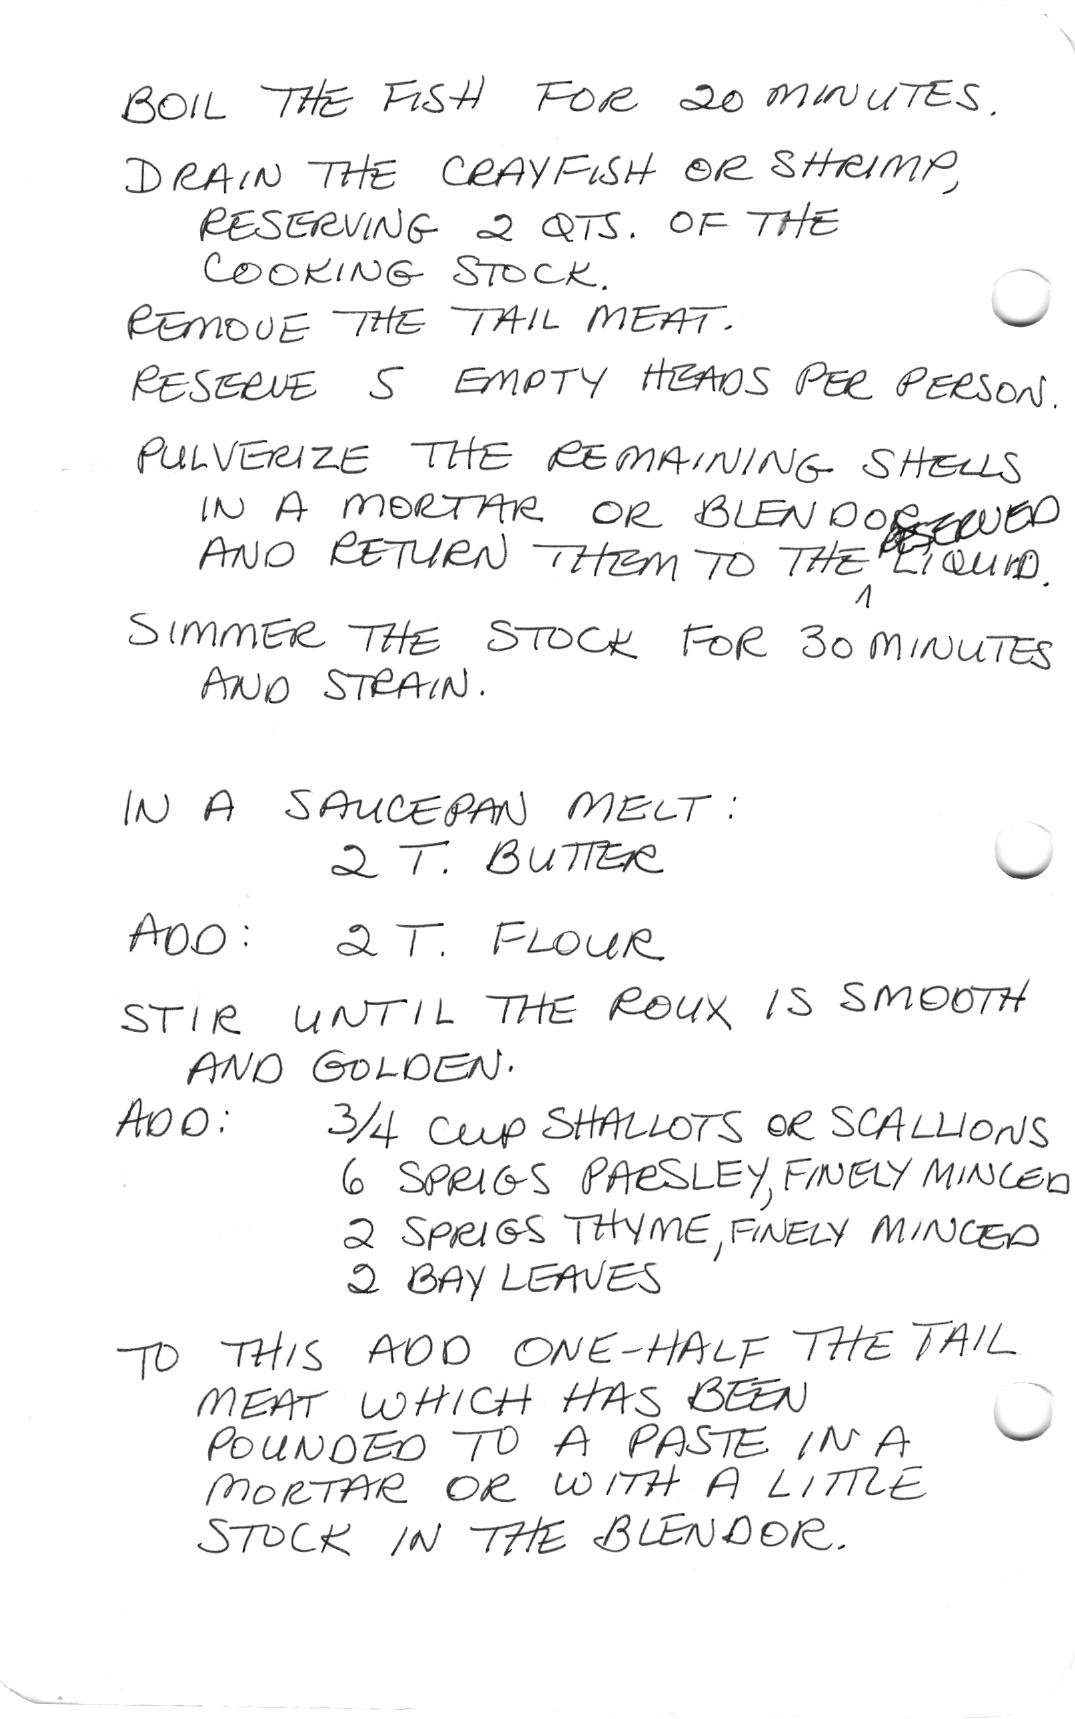 BOIL THE FISH FOR 20 MINUTES.
DRAIN THE CRAYFISH OR SHRIMP,
RESERVING 2 QTS. OF THE
COOKING STOCK.
REMOVE THE TAIL MEAT.
RESERVE 5 EMPTY HEADS PER PERSON.
PULVERIZE THE REMAINING SHELLS
IN A MORTAR OR BLENDOR
AND RETURN THEM TO THE RESERVED LIQUID.
SIMMER THE STOCK FOR 30 MINUTES
AND STRAIN.
IN A SAUCEPAN MELT:
2 T. BUTTER
ADD: 2 T. FLOUR
STIR UNTIL THE ROUX IS SMOOTH
AND GOLDEN.
ADD: 3/4 CUP SHALLOTS OR SCALLIONS
6 SPRIGS PARSLEY, FINELY MINCED
2 SPRIGS THYME, FINELY MINCED
2 BAY LEAVES
TO THIS ADD ONE-HALF THE TAIL
MEAT WHICH HAS BEEN
POUNDED TO A PASTE IN A
MORTAR OR WITH A LITTLE
STOCK IN THE BLENDOR.